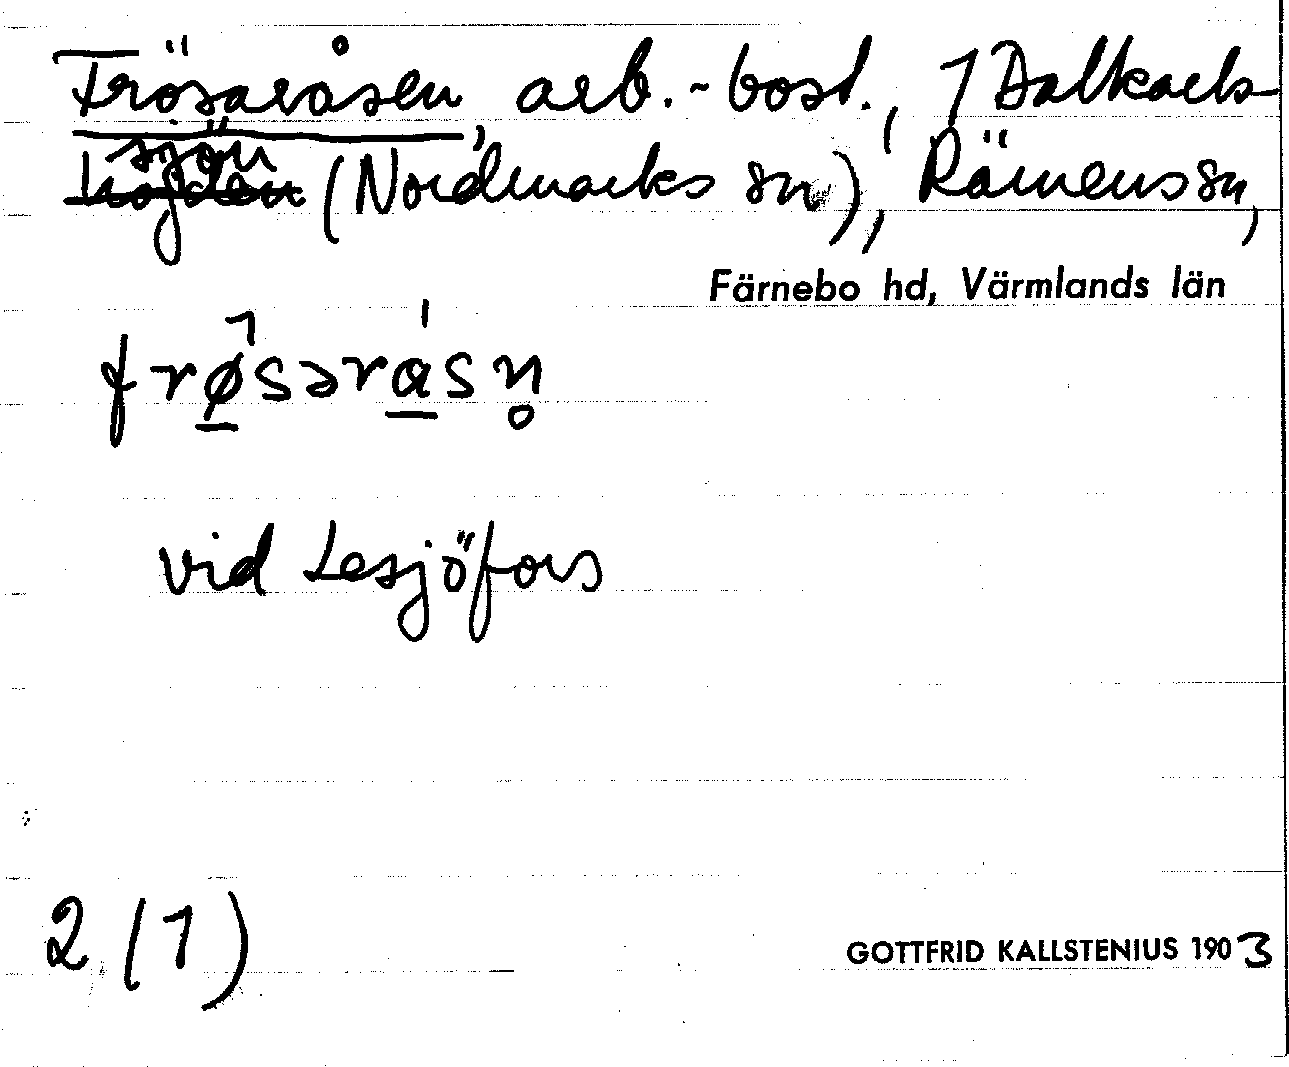 Frösaråsen, arb.-bost., 1 Dalkarls-
sjön (Nordmarks sn), Rämens sn,
Färnebo hd, Värmlands län
frø̂sərásn̥
vid Lesjöfors
2 (1)
GOTTFRID KALLSTENIUS 1903